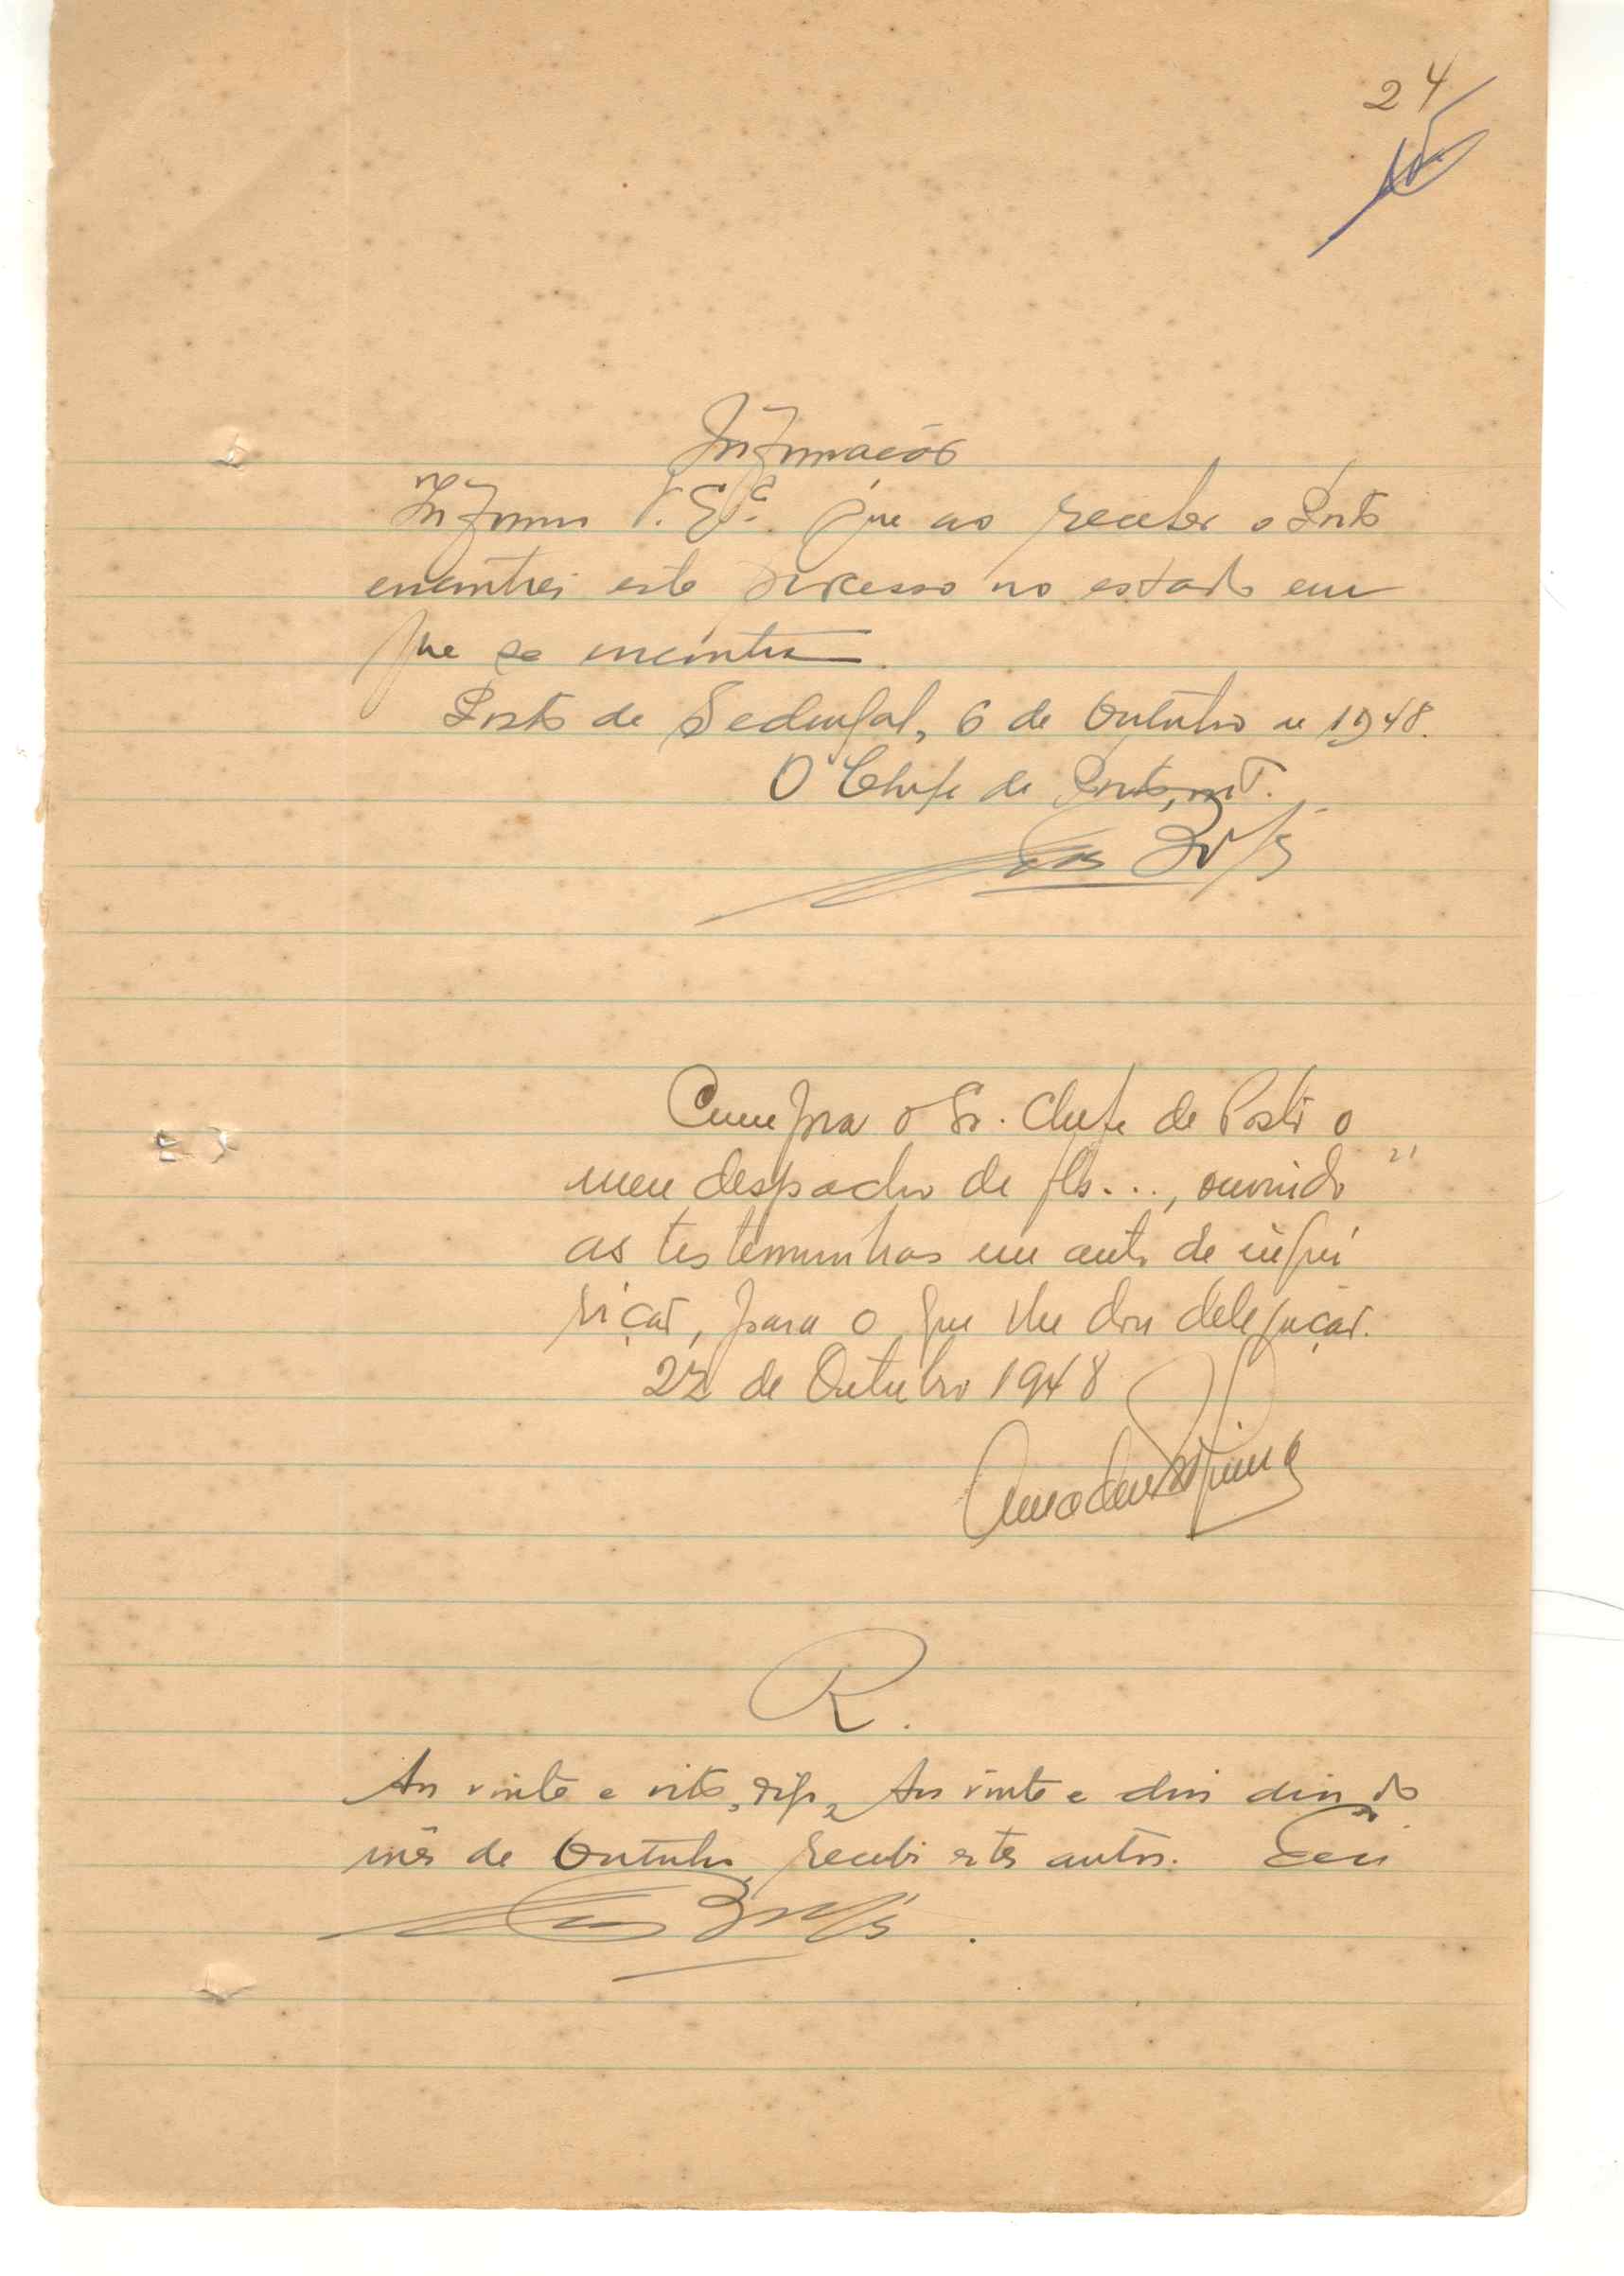 24
Informação
Informo V. Exª. que ao receber o Posto
encontrei este processo no estado em
que se encontra.
Posto de Sedengal, 6 de Outubro de 1948.
O Chefe de Posto, intº.
Cumpra o Sr. Chefe de Posto o
meu despacho de fls..., ouvindo
21
as testemunhas em auto de inqui
rição, para o que lhe dou delegação.
22 de Outubro 1948
R.
Aos vinte e oito, digo, Aos vinte e dois dias do
mês de Outubro, recebi estes autos. Eu